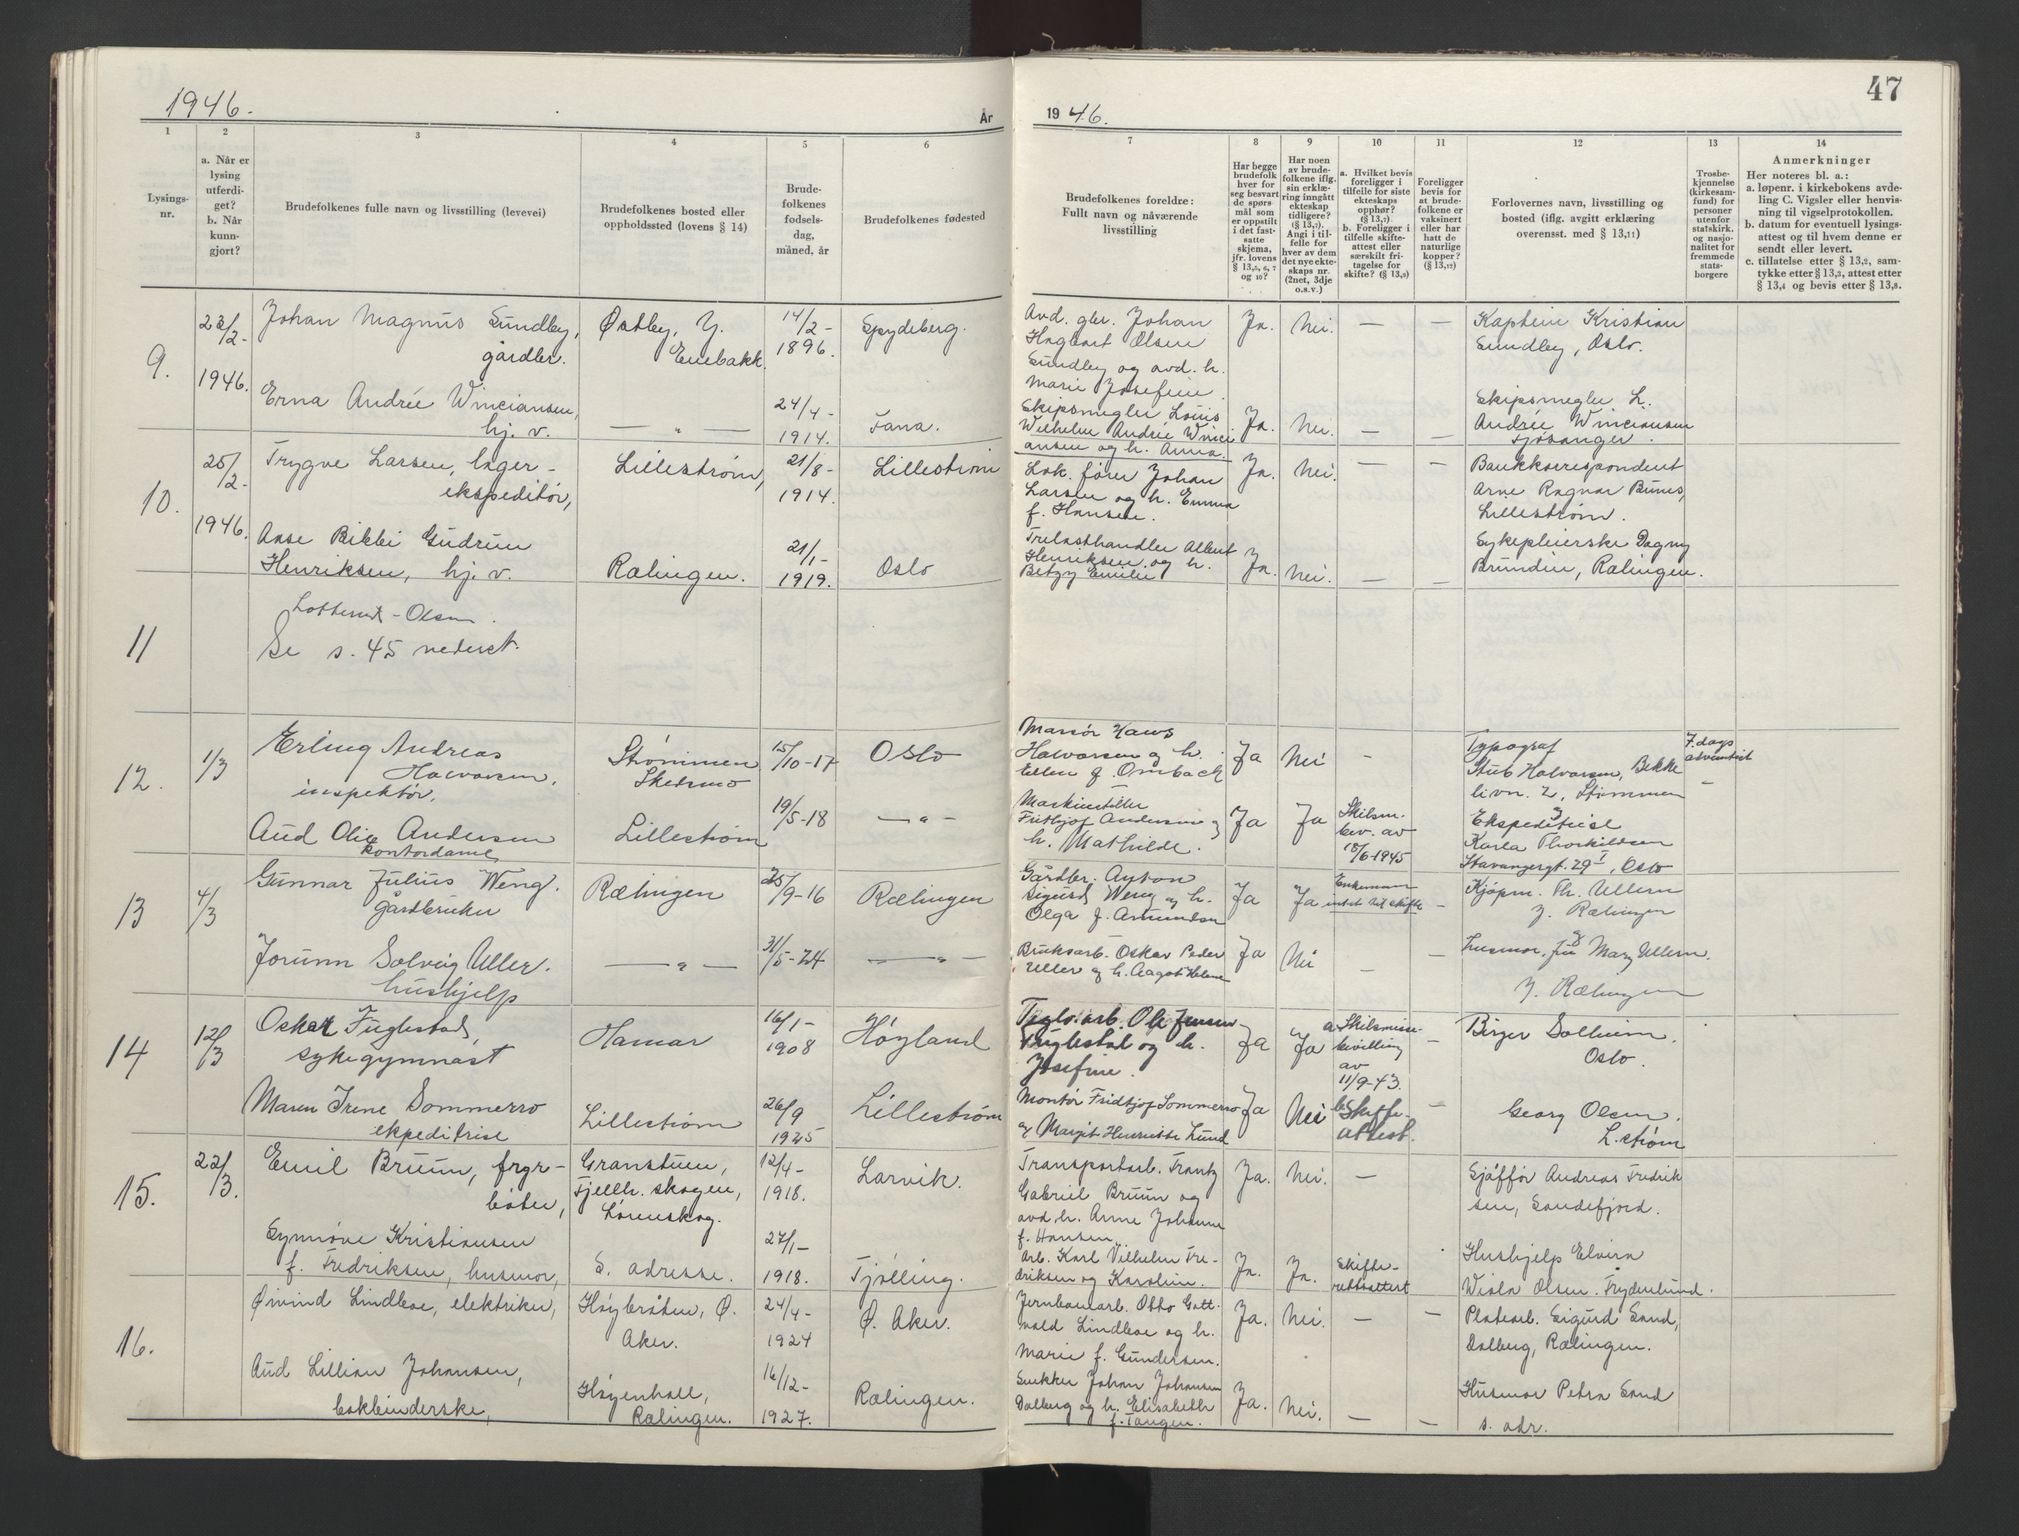 1946.
År
1
2
3
4
5
6
Lysings-
nr.
a. Når er
lysing
utferdi-
get?
b. Når
kunn-
gjort?
Brudefolkenes fulle navn og livsstilling (levevei)
Brudefolkenes bosted eller
oppholdssted (lovens § 14)
Brude-
folkenes
fødsels-
dag,
måned, år
Brudefolkenes fødested
9.
23/2-
1946.
Johan Magnus Sundby,
gårdbr.
Østby, Y.
Enebakk.
14/2-
1896.
Spydeberg.
Erna Andrée Winciansen,
hj. v.
— „ —
24/4-
1914.
Fana.
10.
25/2-
1946.
Trygve Larsen, lager-
ekspeditør,
Lillestrøm,
21/8-
1914.
Lillestrøm
Aase Bibbi Gudrun
Henriksen, hj. v.
Rælingen.
21/1-
1919.
Oslo
11
Olsen.
Se s. 45 nederst.
12.
1/3
Erling Andreas
Halvorsen,
inspektør,
Strømmen
Skedsmo
15/10-17
Oslo
Aud Olie Andersen
kontordame
Lillestrøm
19/5-18
— „ —
13
4/3
Gunnar Julius Weng.
Gårdbruker
Rælingen
25/9-16
Rælingen
Jorunn Solveig Uller.
hushjelp
— „ —
31/5-24
— „ —
14
12/3
Oskar Fuglestad,
sykegymnast
Hamar
16/1-
1908
Høyland
Maren Irene Sommerro
ekpeditrise
Lillestrøm
26/9
1925
Lillestrøm
15.
22/3.
Emil Bruun, fyr-
bøter,
Granstuen,
Fjellh. skogen,
Lørenskog.
12/4-
1918.
Larvik.
Synnøve Kristiansen
f. Fredriksen, husmor,
S. adresse.
27/1-
1918.
Tjølling.
16.
Øivind Lindboe, elektriker,
Høybråten, Ø.
Aker.
24/4-
1924
Ø. Aker.
Aud Lillian Johansen,
bokbinderske,
Høgenhall,
Rælingen.
16/12-
1927.
Rælingen.
47
19 46.
7
8
9
10
11
12
13
14
Brudefolkenes foreldre:
Fullt navn og nåværende
livsstilling
Har begge
brudefolk
hver for
seg besvart
de spørs-
mål som
er oppstilt
i det fast-
satte
skjema,
jfr. lovens
§ 13,5, 6, 7
og 10?
Har noen
av brude-
folkene iflg.
sin erklæ-
ring inngått
ekteskap
tidligere?
(§ 13,7).
Angi i til-
felle for
hver av dem
det nye ekte-
skaps nr.
(2net, 3dje
o.s.v.)
a. Hvilket bevis
foreligger i
tilfelle for siste
ekteskaps
opphør?
(§ 13,7)
b. Foreligger i
tilfelle skifte-
attest eller
særskilt fri-
tagelse for
skifte? (§ 13,9)
Foreligger
bevis for
at brude-
folkene er
vaksinert
eller har
hatt de
naturlige
kopper?
(§ 13,12)
Forlovernes navn, livsstilling og
bosted (iflg. avgitt erklæring
overensst. med § 13,11)
Trosbe-
kjennelse
(kirkesam-
fund) for
personer
utenfor
statskirk.
og nasjo-
nalitet for
fremmede
stats-
borgere
Anmerkninger
Her noteres bl. a.:
a. løpenr. i kirkebokens avde-
ling C. Vigsler eller henvis-
ning til vigselprotokollen.
b. datum for eventuell lysings-
attest og til hvem denne er
sendt eller levert.
c. tillatelse etter § 13,2, sam-
tykke etter § 13,3, attest etter
§ 13,4 og bevis etter § 13,8.
Avd. gbr. Johan
Hagbart Olsen
Sundby og avd. h.
Marie Josefine.
Ja.
Nei.
—
—
Kaptein Kristian
Sundby, Oslo.
Skipsmegler Louis
Wilhelm Andrée Winci
ansen og h. Anna.
Ja.
Nei.
—
—
Skipsmegler L.
Andrée Winciansen
Fjøsanger.
Lok. fører Johan
Larsen og h. Emma
f. Hansen.
Ja.
Nei.
—
—
Bankkorrespondent
Arne Ragnar
Lillestrøm.
Trelasthandler Albert
Henriksen og h.
Betzy Emilie
Ja.
Nei.
—
—
Sykepleierske Dagny
Brundin, Rælingen.
Massør Hans
Halvorsen og h.
Ellen f. Ombach
Ja
Nei
-
Typograf
Stub Halvorsen, Bekke
livn. 2, Strømmen
7. dags
adventist
Maskinstiller
Fritjof Andersen og
h. Mathilde.
Ja
Ja
Skilsm.
bev. av
18/6-1945
og
Ekspeditrise
Karla Thorkildsen
Stavangergt. 29 I, Oslo
Gårdbr. Anton
Sigurd Weng og h.
Olga f. Amundsen
Ja
Ja
Enkemann
intet til skifte
-
Kjøpm. Th. Ullern
Y. Rælingen
Bruksarb. Oskar Peder
Uller og h. Aagot Helene
Ja
Nei
-
-
og
husmor, fru Mary Ullern.
Y. Rælingen
Teglv.arb. Ole Jensen
Fuglestad og h.
Josefine.
Ja
Ja
a. Skilsmisse-
bevilling
av
11/9-43.
-
Birger Solheim.
Oslo.
Montør Fridtjof Sommerro
og Margit Henriette Lund
Ja
Nei
b. Skifte-
attest.
-
Georg Olsen.
L.strøm
Transportarb. Frantz
Gabriel Bruun og
avd. h. Anne Johanne
f. Hansen
Ja.
Nei.
—
Sjåffør Andreas Fredrik
sen, Sandefjord.
Arb. Karl Vilhelm Fre-
driksen og Karoline.
Ja.
Ja.
Skifte-
rettsattest
Hushjelp Elvira
Wiola Olsen. Frydenlund.
Jernbanearb. Otto Gott-
vald Lindboe og h.
Marie f. Gundersen.
Ja.
Nei.
—
—
Platearb. Sigurd Sand,
Dalberg, Rælingen.
Snekker Johan Johansen
Dalberg og h. Elisabeth
f. Tangen.
Ja.
Nei.
—
—
Husmor Petra Sand
s. adr.